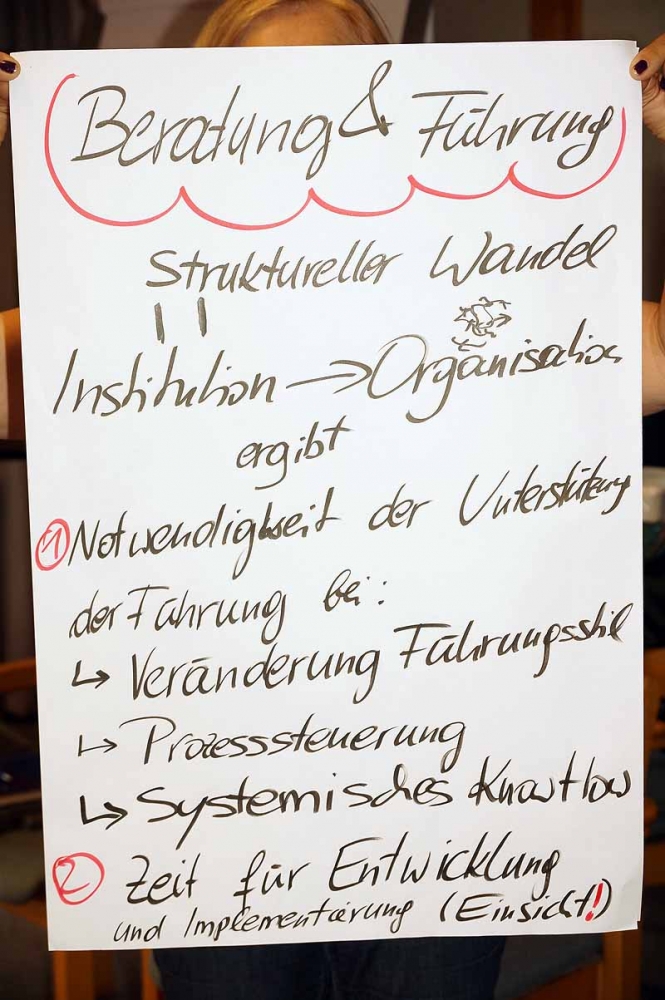 Beratung & Führung
Struktureller Wandel
Institution → Organisation
ergibt
1 Notwendigkeit der Unterstützung
der Führung bei:
↳ Veränderung Führungsstil
↳ Prozesssteuerung
↳ Systemisches KnowHow
2 Zeit für Entwicklung
und Implementierung (Einsicht!)